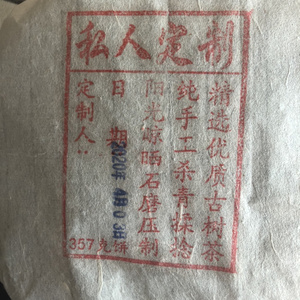 私人定制
精选优质古树茶
纯手工杀青揉捻
阳光晾晒石磨压制
日期
2020年4月03日
定制人:
357克饼